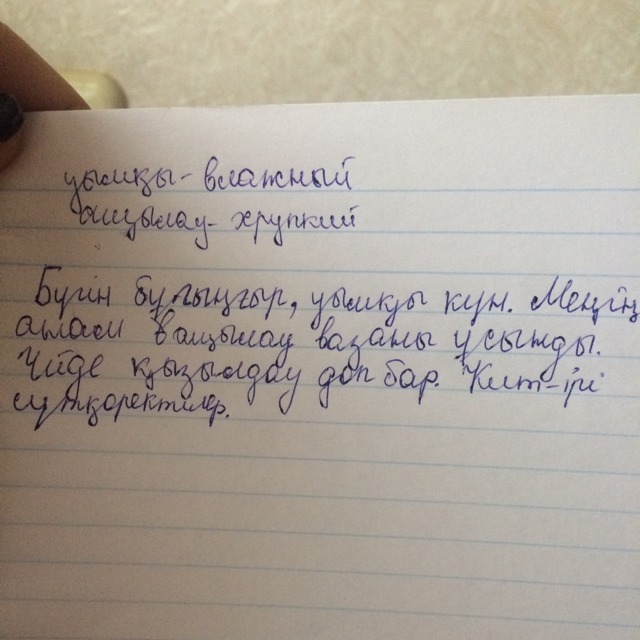 уымқы - влажный
аицылау - хрупкий
Бүгін бұлыңғыр, уымқы күн. Меңің
апам ваицылау вазаны ұсынды.
Үйде қызылдау доп бар. Кит - ірі
сүтқоректілер.